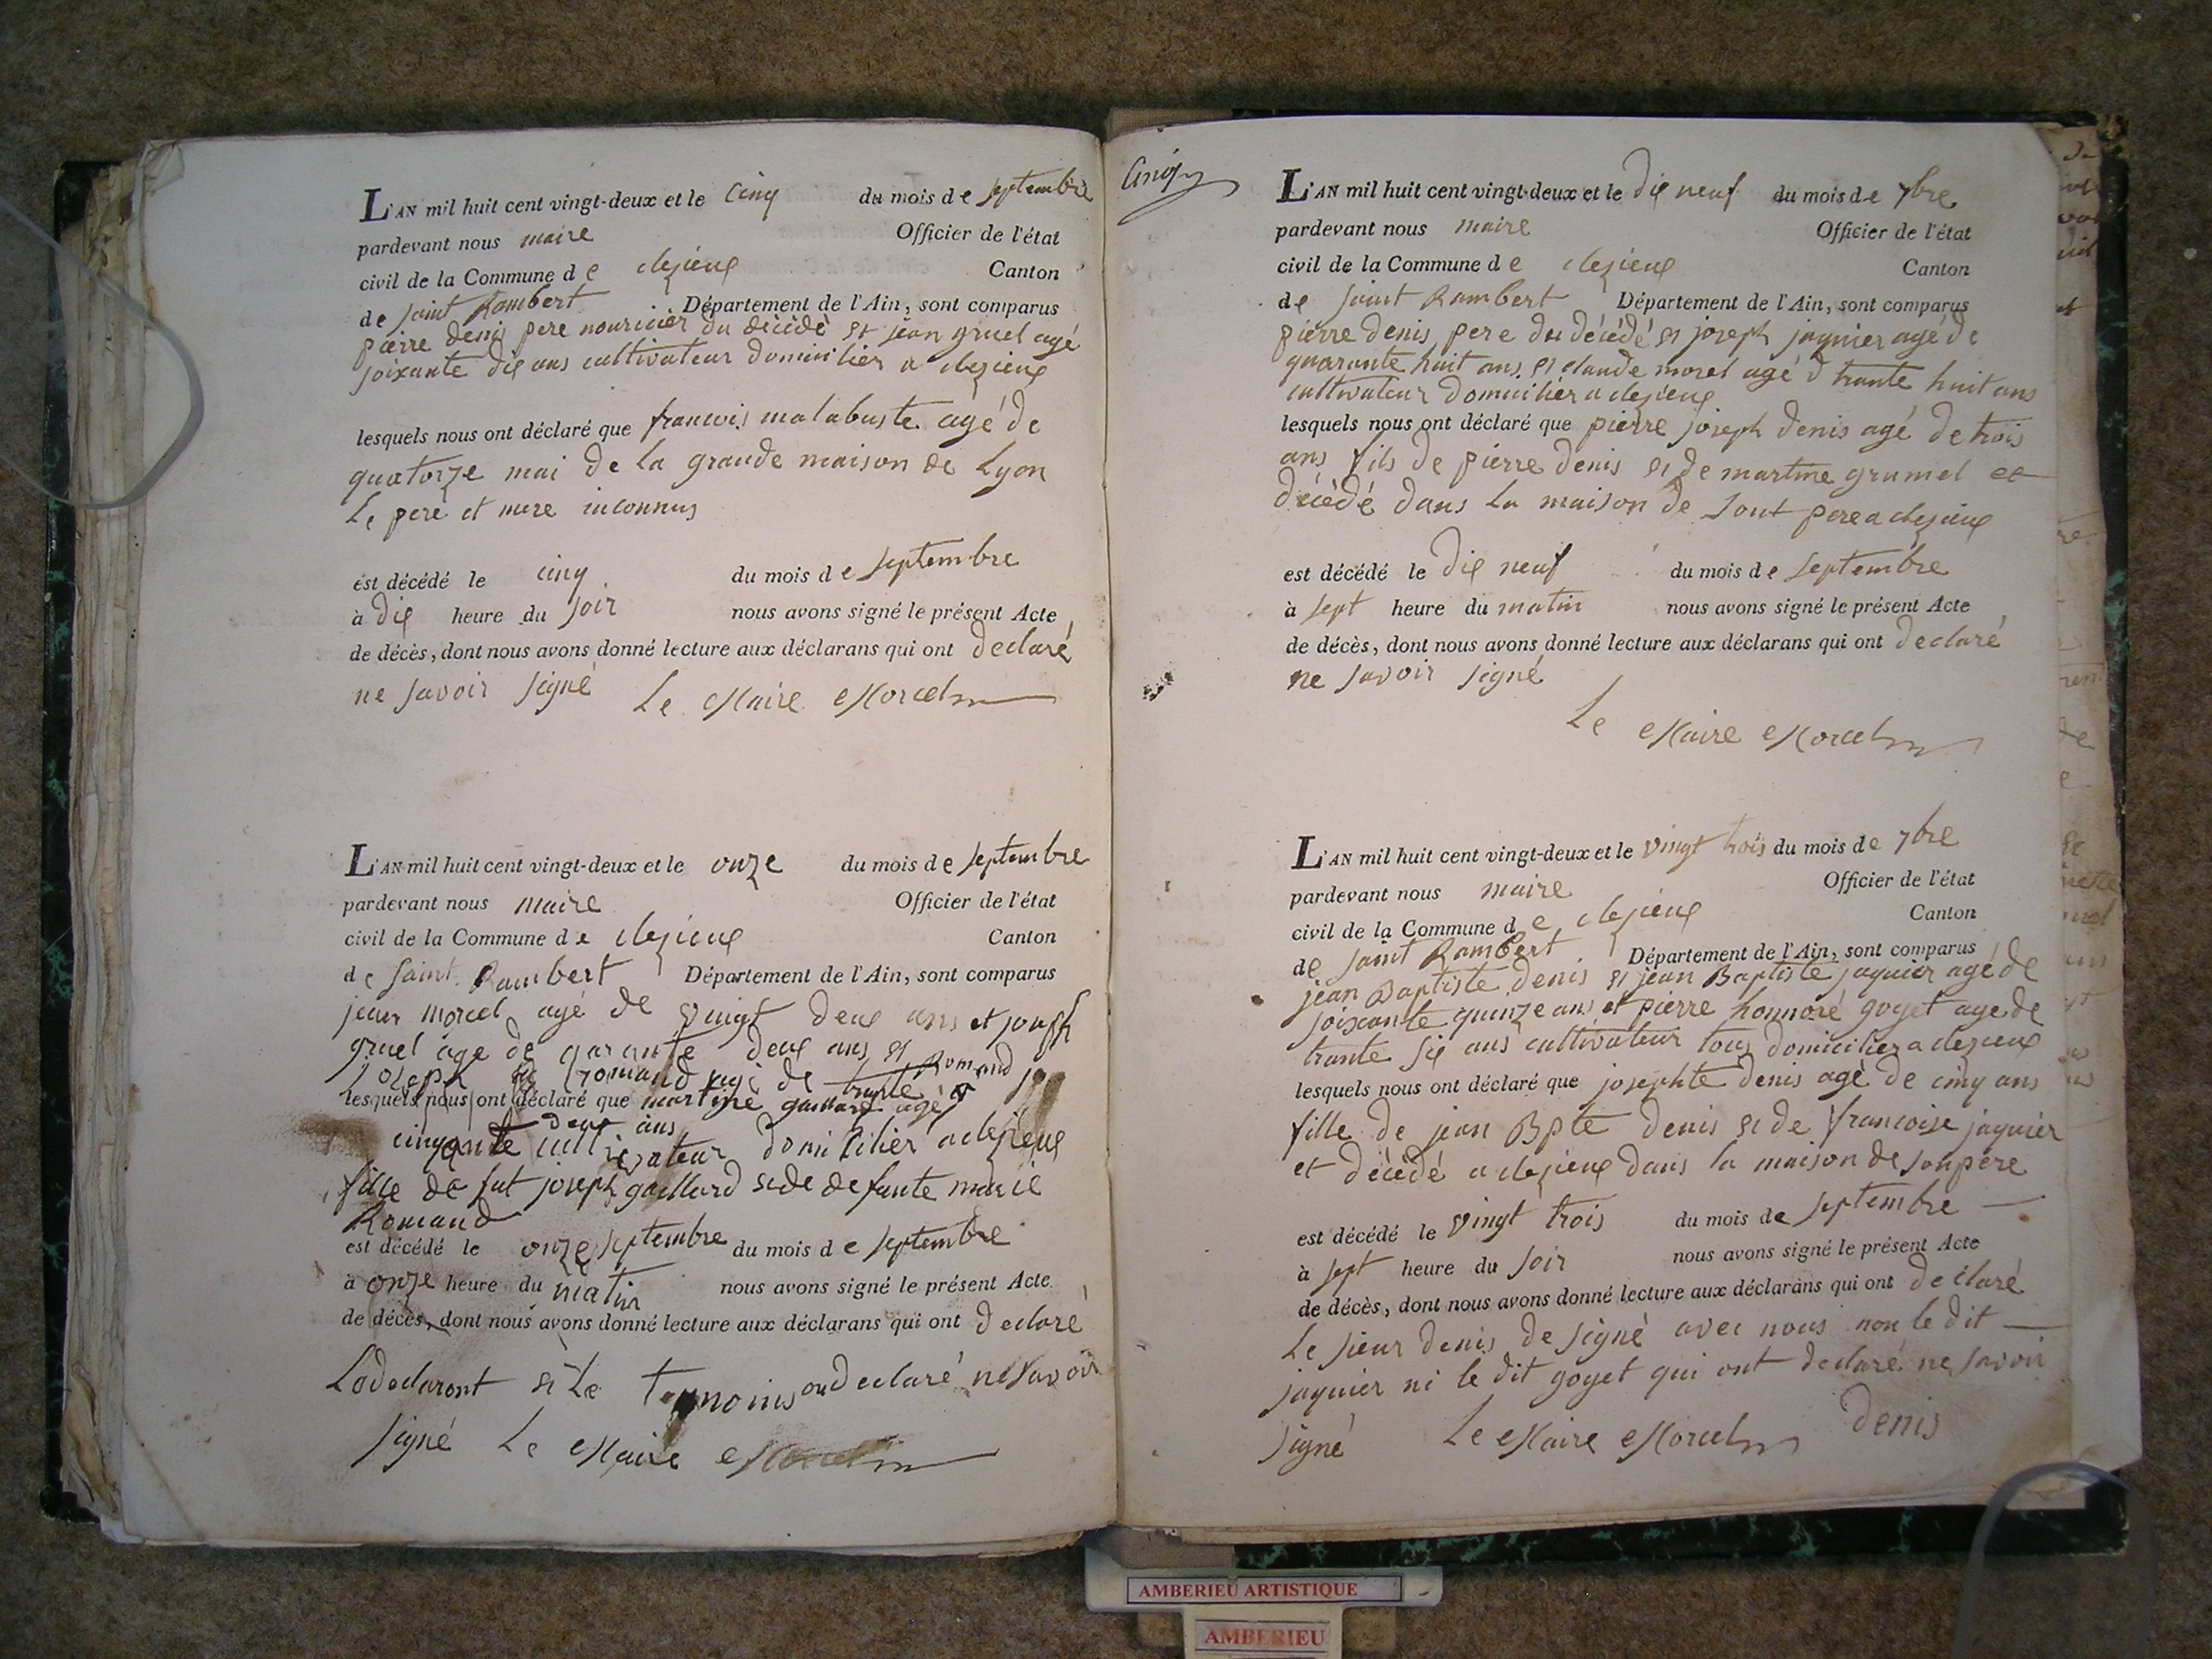 L'AN mil huit cent vingt-deux et le cinq du mois de septembre
pardevant nous maire Officier de l'état
civil de la Commune de clezieux Canton
de saint Rambert Département de l'Ain, sont comparus
pierre denis pere nouricier du décédé et jean gruel agé
soixante dix ans cultivateur domicilier a clezieux
lesquels nous ont déclaré que francois malabuste agé de
quatorze mai de la grande maison de Lyon
Le pere et mere inconnus
est décédé le cinq du mois de septembre
à dix heure du soir nous avons signé le présent Acte
de décès, dont nous avons donné lecture aux déclarans qui ont declaré
ne savoir signé Le Maire Morcel
L'AN mil huit cent vingt-deux et le onze du mois de septembre
pardevant nous maire Officier de l'état
civil de la Commune de clezieux Canton
de saint Rambert Département de l'Ain, sont comparus
jean morcel agé de vingt deux ans et joseph
gruel age de garante deux ans et
joseph romand agé de trante Romand
lesquels nous ont déclaré que martine gaillard agé
deux ans
cinqante cultivateur domicilier a clezieux
fille de fut joseph gaillard et de defunte marie
Romand
est décédé le onze septembre du mois de septembre
à onze heure du matin nous avons signé le présent Acte
de décès, dont nous avons donné lecture aux déclarans qui ont declaré
Ladeclaront et Le temnoins on declaré ne savoir
signé Le Maire Morcel
L'AN mil huit cent vingt-deux et le dix neuf du mois de 7bre
pardevant nous maire Officier de l'état
civil de la Commune de clezieux Canton
de saint Rambert Département de l'Ain, sont comparus
pierre denis pere du décédé et joseph jaquier agé de
quarante huit ans et claude morel agé d trante huit ans
cultivateur domicilier a clezieux
lesquels nous ont déclaré que pierre joseph denis agé de trois
ans fils de pierre denis et de martine grumel et
décédé dans la maison de sont pere a clezieux
est décédé le dix neuf du mois de septembre
à sept heure du matin nous avons signé le présent Acte
de décès, dont nous avons donné lecture aux déclarans qui ont declaré
ne savoir signé
Le Maire Morcel
L'AN mil huit cent vingt-deux et le vingt trois du mois de 7bre
pardevant nous maire Officier de l'état
civil de la Commune de clezieux Canton
de saint Rambert Département de l'Ain, sont comparus
jean Baptiste denis et jean Baptiste jaquier agé de
soixante quinze ans et pierre honnoré goyet age de
trante six ans cultivateur tous domicilier a clezieux
lesquels nous ont déclaré que josephte denis agé de cinq ans
fille de jean Bpte denis et de francoise jaquier
et décédé a clezieux dans la maison de son pere
est décédé le vingt trois du mois de septembre
à sept heure du soir nous avons signé le présent Acte
de décès, dont nous avons donné lecture aux déclarans qui ont declaré
Le sieur denis de signé avec nous non le dit
jaquier ni le dit goyet qui ont declaré ne savoir
signé Le Maire Morcel denis
AMBERIEU ARTISTIQUE
AMBERIEU